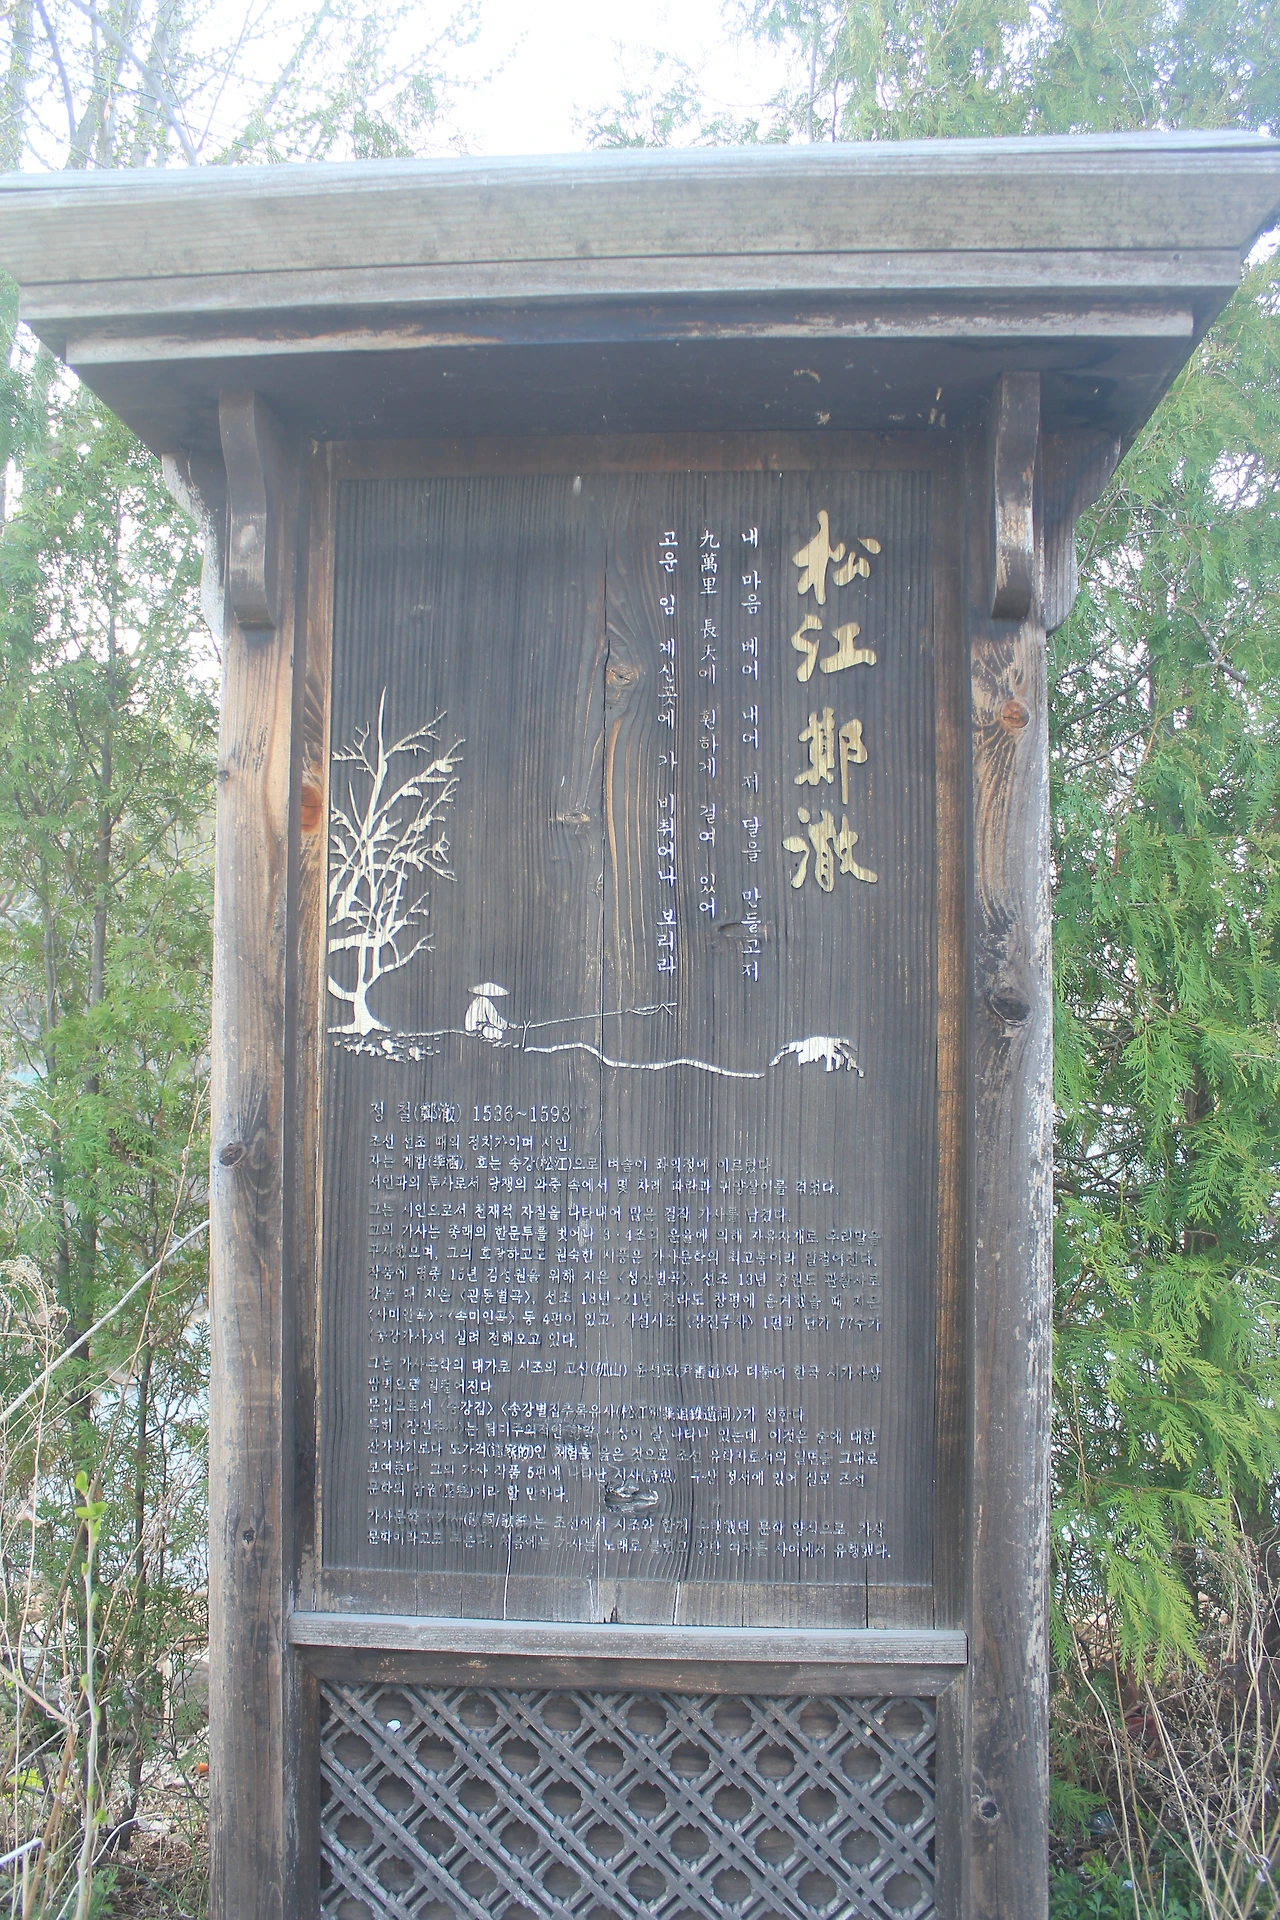 松江 鄭澈
내 마음 베어 내어 저 달을 만들고저
九萬里 長天에 훤하게 걸여 있어
고운 임 계신곳에 가 비취어나 보리라
정 철(鄭澈) 1536~1593
조선 선조 때의 정치가이며 시인.
자는 계함(季涵), 호는 송강(松江)으로 벼슬이 좌의정에 이르렀다
서인파의 투사로서 당쟁의 와중 속에서 몇 차례 파란과 귀양살이를 겪었다.
그는 시인으로서 천재적 자질을 나타내어 많은 걸작 가사를 남겼다.
그의 가사는 종래의 한문투를 벗어나 3·4조의 운율에 의해 자유자재로 우리말을
구사했으며, 그의 호탕하고도 원숙한 시풍은 가사문학의 최고봉이라 일컬어진다.
작품에 명종 15년 김성원을 위해 지은 <성산별곡>, 선조 13년 강원도 관찰사로
갔을 때 지은 <관동별곡>, 선조 18년~21년 전라도 창평에 은거했을 때 지은
<사미인곡>·<속미인곡> 등 4편이 있고, 사설시조 <장진주사> 1편과 단가 77수가
<송강가사>에 실려 전해오고 있다.
그는 가사문학의 대가로 시조의 고산(孤山) 윤선도(尹善道)와 더불어 한국 시가사상
쌍벽으로 일컬어진다
문집으로서 <송강집> <송강별집추록유사(松江別集追錄遺詞)>가 전한다
특히 <장진주사>는 사상이 잘 나타나 있는데, 이것은 술에 대한
도가적(道家的)인 체험을 읊은 것으로 조선 그대로
보여준다. 그의 가사 작품 5편에 나타난 시사(詩想), 정서에 있어 실로 조선
문학의 이라 할 만하다.
조선에서 시조와 함께 유행했던 문학 양식으로, 가사
문학이라고도 가사는 노래로 양반 여자들 사이에서 유행했다.